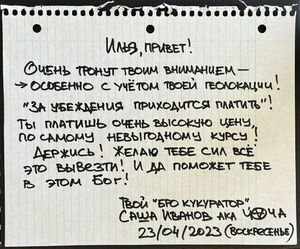 Илья, привет!
Очень тронут твоим вниманием —
→ особенно с учётом твоей геолокации!
"За убеждения приходится платить"!
Ты платишь очень высокую цену,
по самому невыгодному курсу!
Держись! Желаю тебе сил всё
это вывезти! И да поможет тебе
в этом Бог!
Твой "бро кукуратор"
Саша Иванов aka
23/04/2023 (воскресенье)